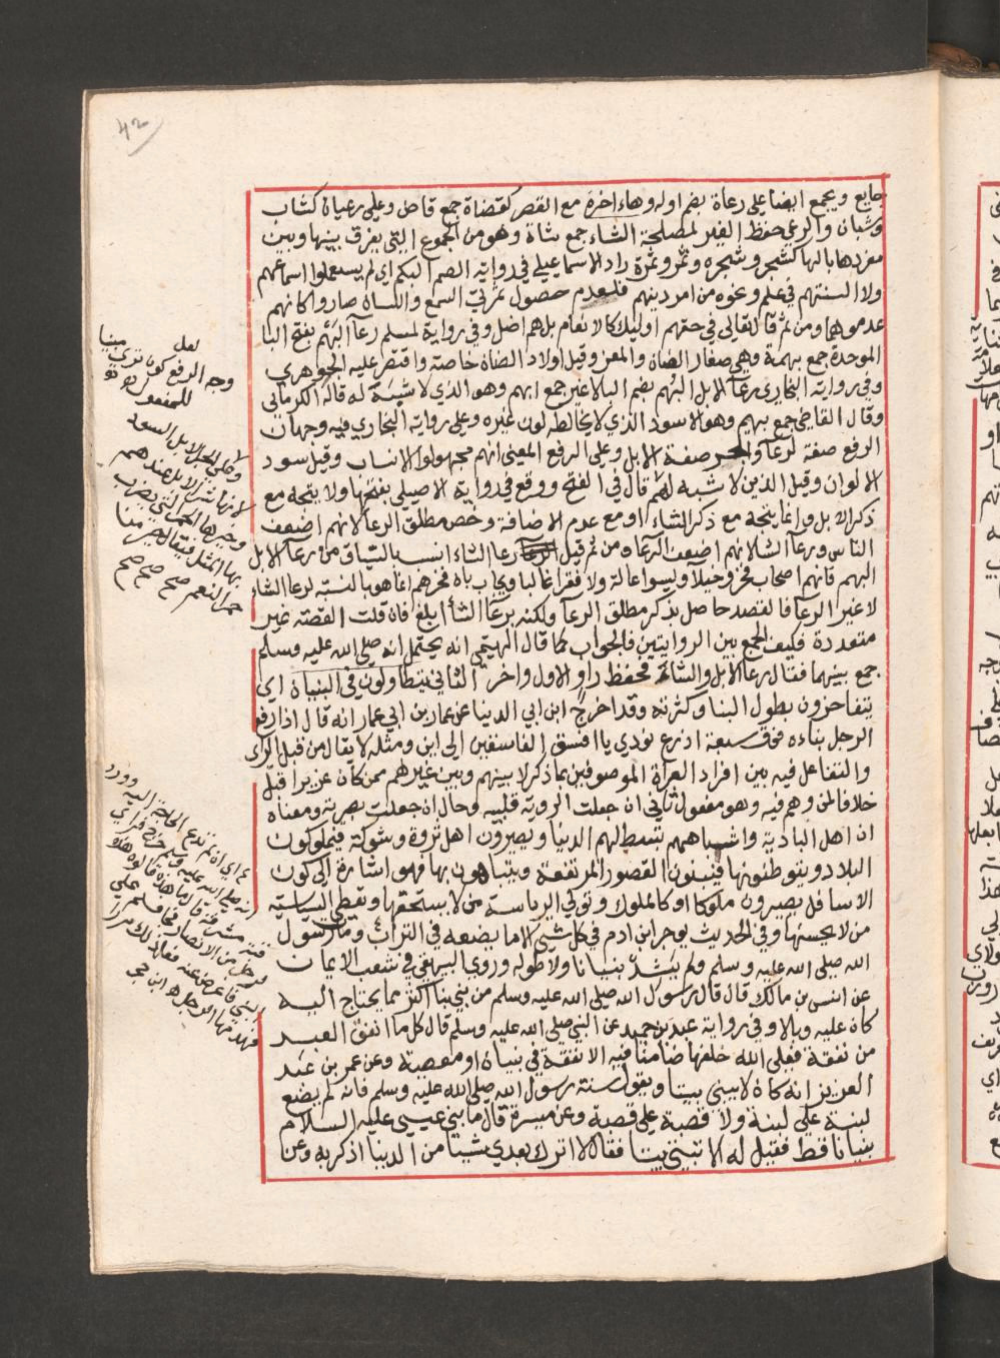 جايع ويجمع ايضا على رعاة بضم اوله وهاء اخره مع القصر كقضاة جمع قاض وعلى رعيان كشاب
وشبان والرعي حفظ الغير لمصلحة الشاء جمع شاة وهو من الجموع التي يفرق بينها وبين
مفردها بالها كشجر وشجره وثمر وثمرة زاد الاسماعيلي في رواية الصم البكم اي لم يستعملوا اسماعهم
ولا السنتهم في علم ونحوه من امر دينهم فلعدم حصول ثمرتي السمع واللسان صاروا كانهم
عدموهما ومن ثم قال تعالى في حقهم اوليك كالانعام بل هم اضل وفي رواية لمسلم رعآ البهم بفتح البا
الموحدة جمع بهمة وهي صغار الضان والمعز وقيل اولاد الضان خاصة واقتصر عليه الجوهري
وفي رواية البخاري رعآ الابل البهم بضم البا لا غير جمع ابهم وهو الذي لا شبه له قاله الكرماني
وقال القاضي جمع بهيم وهو الاسود الذي لا يخالطه لون غيره وعلى رواية البخاري فيه وجهان
الرفع صفة لرعآ والجر صفة الابل وعلى الرفع المعنى انهم مجهولوا الانساب وقيل سود
الالوان وقيل الذين لا شبه لهم قال في الفتح ووقع في رواية الاصيلي بفتحها ولا يتجه مع
ذكر الابل وانما يتجه مع ذكر الشاء او مع عدم الاضافة وخص مطلق الرعا لانهم اضعف
الناس ورعآ الشا لانهم اضعف الرعآ ومن ثم قيل رعا الشاء انسب بالسياق من رعآ الابل
البهم فانهم اصحاب فخر وخيلآ وليسوا عالة ولا فقرا غالبا ويجاب بان فخرهم انما هو بالنسبة لرعا الشاء
لا غير الرعآ فالقصد حاصل بذكر مطلق الرعآ ولكنه برعآ الشا ابلغ فان قلت القصة غير
متعددة فكيف الجمع بين الروايتين فالجواب كما قال الهيتمي انه يحتمل انه صلى الله عليه وسلم
جمع بينهما فقال رعا الابل والشاء فحفظ راو الاول واخر الثاني يتطاولون في البنيان اي
يتفاخرون بطول البنا وكثرته وقد اخرج ابن ابي الدنيا عن عمار بن ابي عمار انه قال اذا رفع
الرجل بناءه فوق سبعة اذرع نودي يا افسق الفاسقين الى اين ومثله لا يقال من قبل الراي
والتفاعل فيه بين افراد العراة الموصوفين بما ذكر لا بينهم وبين غيرهم ممن كان عزيزا قبل
خلافا لمن وهم فيه وهو مفعول ثاني ان جعلت الروية قلبية وحال ان جعلت بصرية ومعناه
ان اهل البادية واشباههم تبسط لهم الدنيا ويصيرون اهل ثروة وشوكة فيملكون
البلاد ويتوطنونها فيبنون القصور المرتفعة ويتباهون بها فهو اشارة الى كون
الاسافل يصيرون ملوكا او كالملوك وتولي الرياسة من لا يستحقها وتعطي السياسة
من لا يحسنها وفي الحديث يوجر ابن ادم في كل شيى الا ما يضعه في التراب ومات رسول
الله صلى الله عليه وسلم ولم يشد بنيانا ولا طوله وروي البيهقي في شعب الايمان
عن انس بن مالك قال قال رسول الله صلى الله عليه وسلم من بنى بنا اكثر مما يحتاج اليه
كان عليه وبالا وفي رواية عبد بن حميد عن النبي صلى الله عليه وسلم قال كل ما انفق العبد
من نفقة فعلى الله خلفها ضامنا فيه الا نفقة في بنيان او معصية وعن عمر بن عبد
العزيز انه كان لا يبني بيتا ويقول سنة رسول الله صلى الله عليه وسلم فانه لم يضع
لبنة على لبنة ولا قصبة على قصبة وعن ميسرة قال ما بنى عيسى عليه السلام
بنيانا قط فقيل له الا تبني بيتا فقال لا اترك بعدي شيئا من الدنيا اذكر به وعن
لعل
وجه الرفع كون ترى مبنيا
للمفعول
وعلى الجر الابل السود
لانها شر الابل عندهم
وخيرها الحمر التي يضرب
بها المثل فيقال خير من
حمر النعم صح صح صح
اي ان لم تدع الحاجة اليه وورد
انه صلى الله عليه وسلم خرج فراي
قبة مشرفة فقال ما هذه قالوا هذه
لرجل من الانصار فجا فسلم على
النبي فاعرض عنه فعل ذلك مرارا
فهدمها الرجل ه ابن حجر